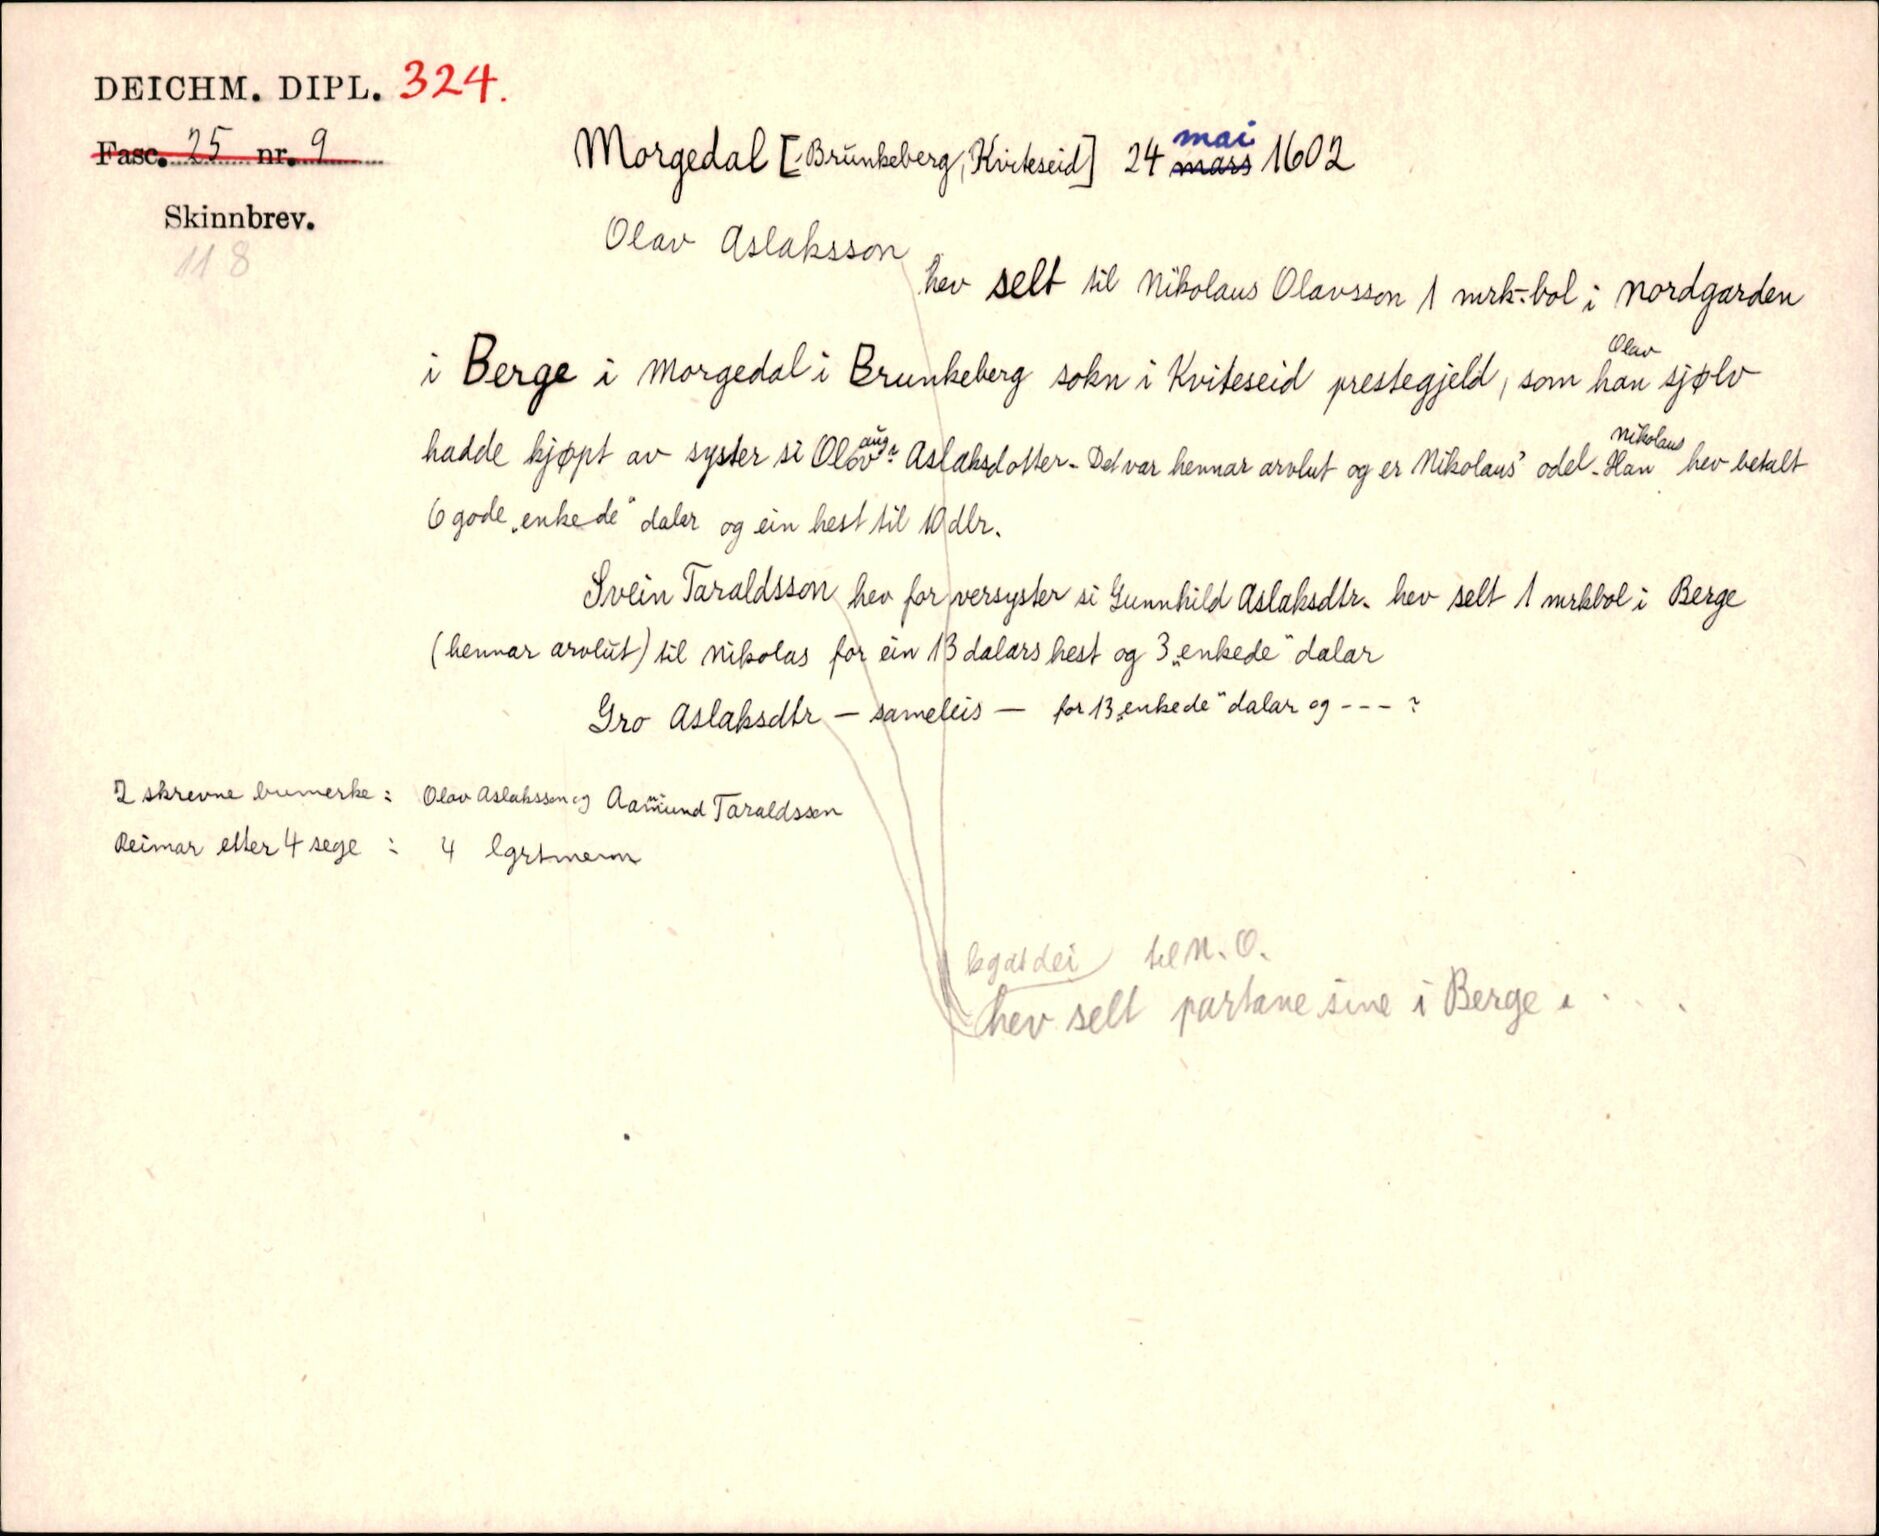 DEICHM. DIPL. 324.
Fasc. 25 nr. 9
Skinnbrev.
118
Morgedal [Brunkeberg, Kviteseid] 24 mars mai 1602
Olav Aslaksson
hev selt til Nikolaus Olavsson 1 mrk-bol i Nordgarden
i Berge i Morgedal i Brunkeberg sokn i Kviteseid prestegjeld, som han Olav sjølv
hadde kjøpt av syster si Olov aug? Aslaksdotter. Det var hennar arvlut og er Nikolaus' odel. Han Nikolaus hev betalt
6 gode „enkede" daler og ein hest til 10 dlr.
Svein Taraldsson hev for versyster si Gunnhild Aslaksdtr. hev selt 1 mrkbol i Berge
(hennar arvlut) til Nikolas for ein 13 dalars hest og 3 „enkede" dalar
Gro Aslaksdtr — sameleis — for 13 „enkede" dalar og - - - ?
2 skrevne bumerke: Olav Aslaksson og Aamund Taraldsson
Reimar etter 4 segl : 4 lgrtmenn
til N. O.
hev selt partane sine i Berge i . . . .